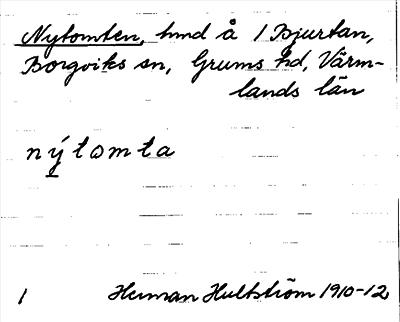 Nytomten, hmd å 1 Bjurtan,
Borgviks sn, Grums hd, Värm-
lands län
nýtomta
1 Herman Hultström 1910-12